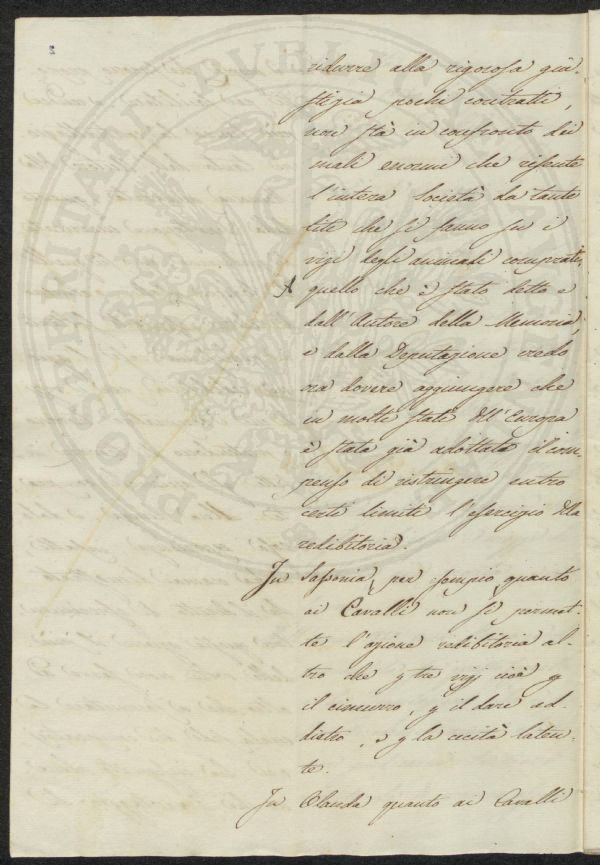 2
ridurre alla rigorosa giu-
stizia pochi contratti,
non stà in confronto dei
mali enormi che risente
l'intera Società da tante
liti che si fanno su i
vizi degli animali comprati,
A quello che è stato detto e
dall'Autore della Memoria,
e dalla Deputazione credo
ora dovere aggiungere che
in molti stati dell'Europa
è stata già adottato il com-
penso di ristringere entro
certi limiti l'esercizio della
redibitoria.
In Sassonia, per sempio, quanto
ai Cavalli non si permet-
te l'azione redibitoria al-
tro che p tre vizj cioè p
il cimurro, p il dare ad-
dietro, e p la cecità laten-
te.
In Olanda quanto ai Cavalli
PROSPERITATI PUBLICAE